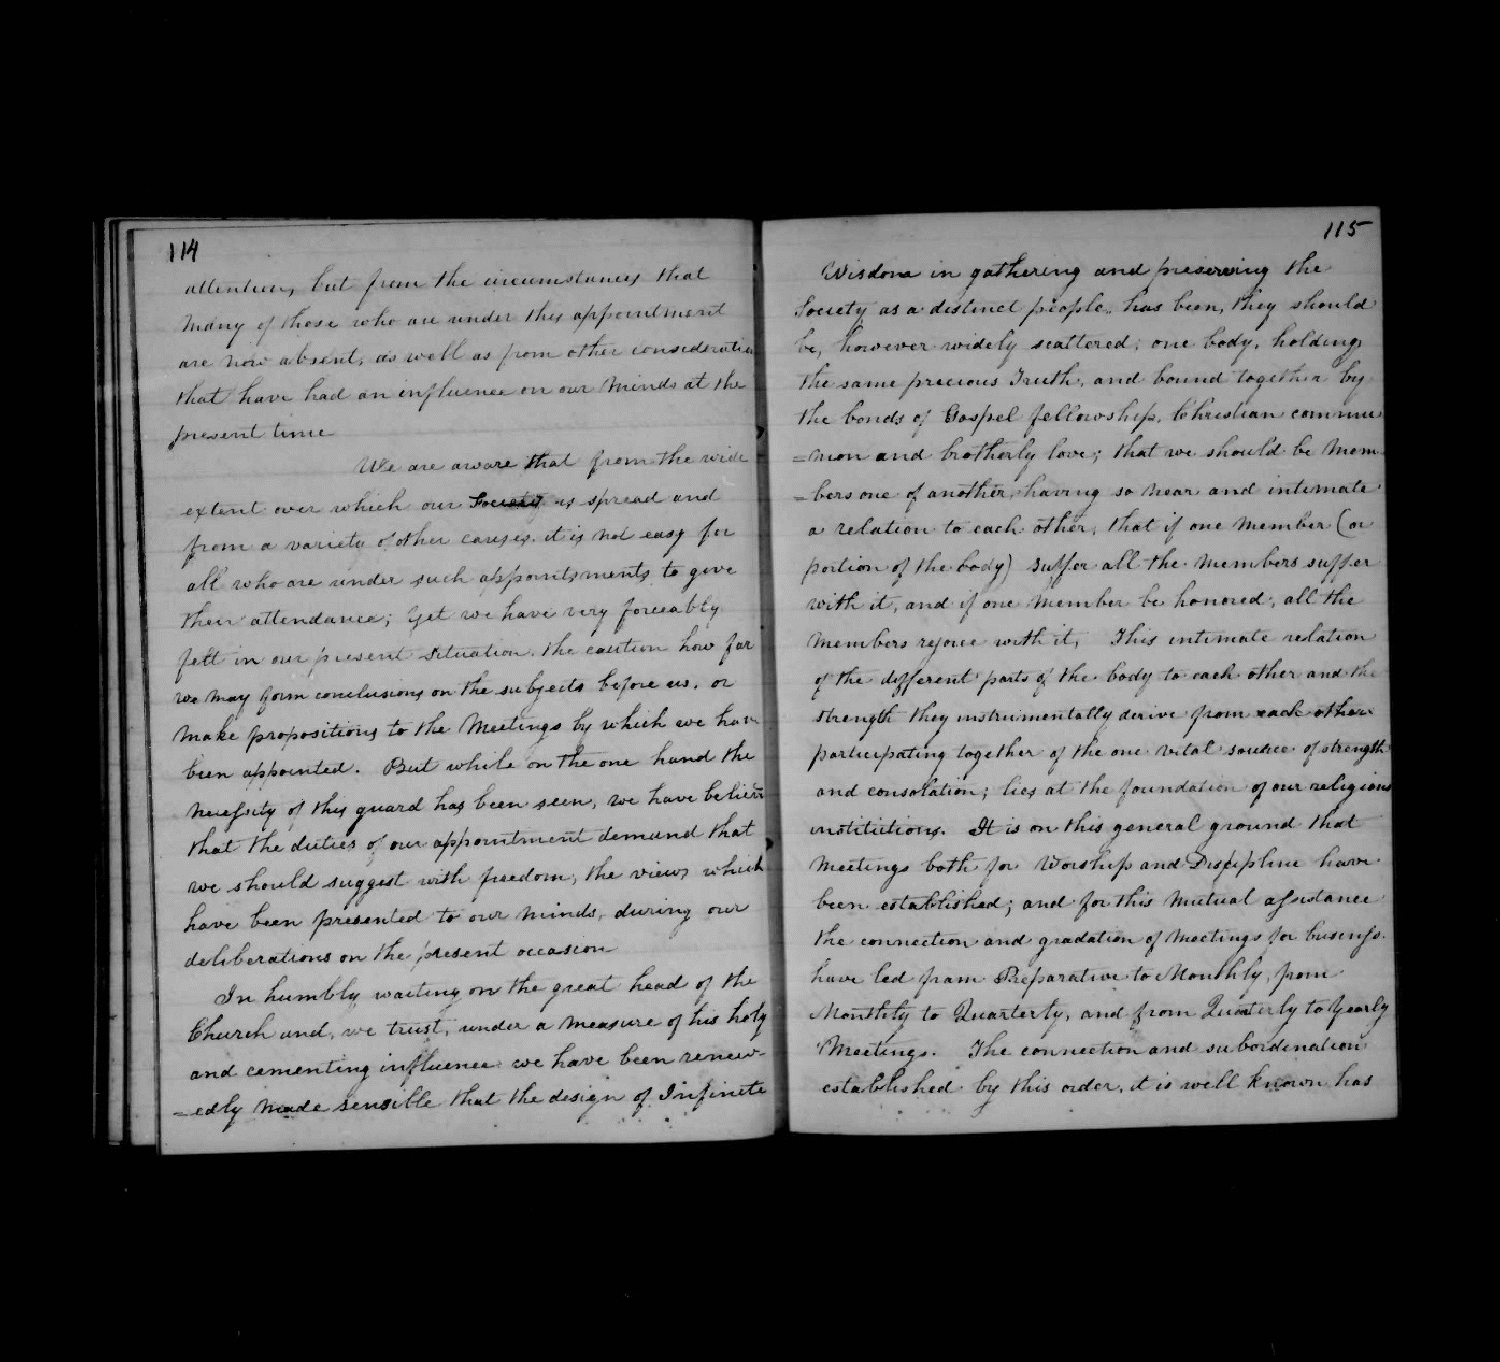 114
attention, but from the circumstances that
many of those who are under this appointment
are now absent, as well as from other consideration
that have had an influence on our minds at the
present time
We are aware that from the wide
extent over which our Society is spread and
from a variety of other causes. it is not easy for
all who are under such appointsments to give
their attendance; Yet we have very forceably
felt in our present situation. the caution how far
we may form conclusions on the subjects before us, or
make propositions to the Meetings by which we have
been appointed. But while on the one hand the
necessity of this guard has been seen, we have believed
that the duties of our appointment demand that
we should suggest with freedom, the views which
have been presented to our minds, during our
deliberations on the present occasion
In humbly waiting on the great head of the
Church and, we trust, under a measure of his holy
and cementing influence we have been renew-
=edly made sensible that the design of Infinete
115
Wisdom in gathering and preserving the
Society as a distinct people, has been, they should
be, however widely scattered, one body, holding
the same precious Truth, and bound together by
the bonds of Gospel fellowship, Christian commu
=nion and brotherly love; that we should be Mem-
=bers one of another, having so near and intimate
a relation to each other, that if one member (or
portion of the body) suffer all the members suffer
with it, and if one member be honored, all the
members rejoice with it, This intimate relation
of the different parts of the body to each other and the
strength they instrumentally derive from each other
participating together of the one vital source of strength
and consolation; lies at the foundation of our religious
institutions. It is on this general ground that
Meetings both for Worship and Discipline have
been established; and for this mutual assistance
the connection and gradation of Meetings for business
have led from Preparative to Monthly, from
Monthly to Quarterly, and from Quarterly to Yearly
Meetings. The connection and subordenation
established by this order, it is well known has